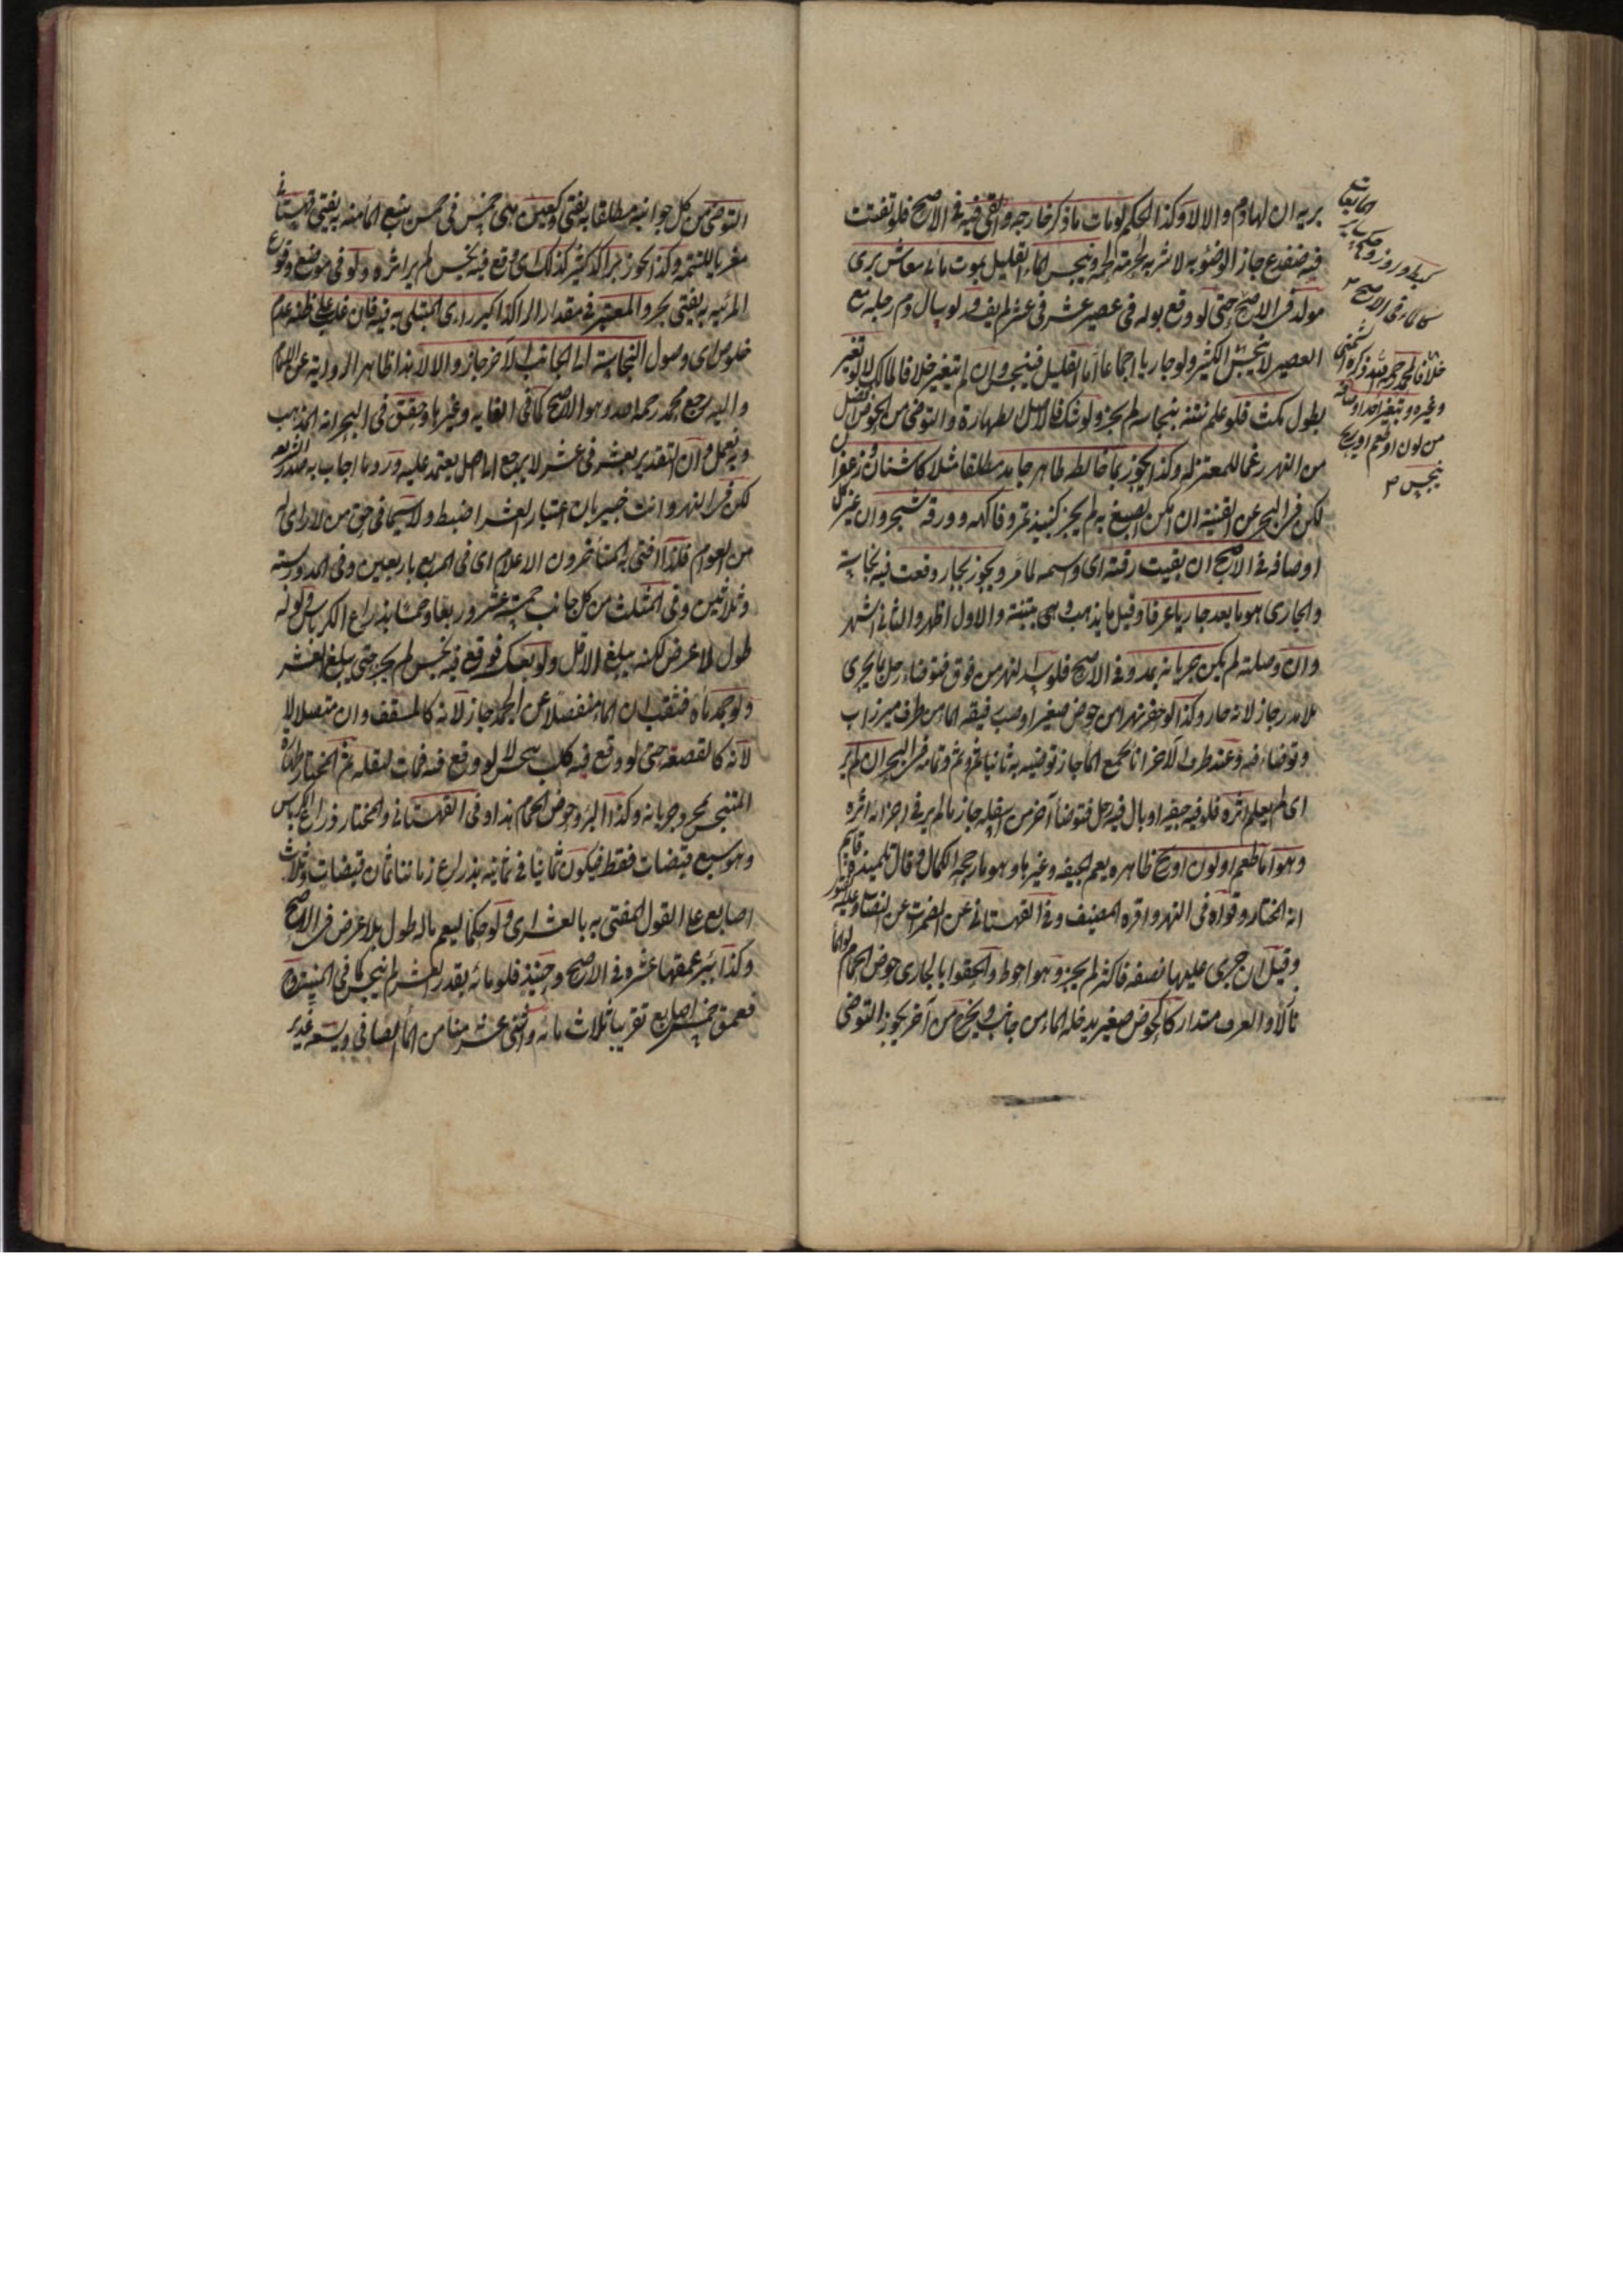 برية ان لها دم والا لا وكذا الحكم لو مات ما ذكر خارجه والقى فيه فى الاصح فلو تفتت
فيه ضفدع جاز الوضوء به لا شربه لحرمة لحمه وينجس الماء القليل بموت مائى معاش برى
مولد فى الاصح حتى لو وقع بوله فى عصير عشر فى عشر لم يفسد ولو سال دم رجله مع
العصير لا ينجس الكثير ولو جاريا اجماعا اما القليل فينجس وان لم يتغير خلافا لمالك لا لو تغير
بطول مكث فلو علم نتنه بنجاسة لم يجز ولو شك فالاصل الطهارة والتوضى من الحوض افضل
من النهر رغما للمعتزله وكذا يجوز بما خالطه طاهر جامد مطلقا مثلا كاشنان وزعفران
لكن فى البحر عن القنية ان امكن الصبغ به لم يجز كنبيذ تمر وفاكهه وورق شجر وان غير كل
اوصافه فى الاصح ان بقيت رقته اى واسمه لما مر ويجوز بجار وقعت فيه نجاسة
والجارى هو ما يعد جاريا عرفا وقيل ما يذهب بتبنة والاول اظهر والثانى اشهر
وان وصلية لم يكن جريانه بمدد فى الاصح فلو سد النهر من فوق فتوضاء رجل بما يجرى
بلا مدد جاز لانه جار وكذا لو حفر نهرا من حوض صغير او صب فيقه الماء من طرف ميزاب
وتوضاء فيه وعند طرفه الاخر اناء يجمع الماء جاز توضيه به ثانيا ثم وثم وتمامه فى البحر ان لم ير
اى لم يعلم اثره فلو فيه جيفة او بال فيه رجل فتوضأ آخر من اسفله جاز ما لم ير فى اجزائه اثره
وهو اما طعم او لون او ريح ظاهره يعم الجيفه وغيرها وهو ما رجحه الكمال وقال تلميذه قاسم
انه المختار وقواه فى النهر واقره المصنف وفى القهستانى عن المضمرات عن النصاب وعليه الفتوى
وقيل ان جرى عليها نصفه فاكثر لم يجز وهو احوط والحقوا بالجارى حوض الحمام لو الماء
نازلا والغرف متدارك كحوض صغير يدخله الماء من جانب ويخرج من آخر يجوز التوضى
خلافا لمحمد رحمه الله ذكره الشمنى
وغيره وبتغير احد اوصافه
من لون او طعم او ريح
ينجس
التوضى من كل جوانبه مطلقا به يفتى وكعين هى خمس فى خمس ينبع الماء منه به يفتى قهستانى
معزيا للتتمة وكذا يجوز براكد كثير كذلك اى وقع فيه نجس لم ير اثره ولو فى موضع وقوع
المرئيه به يفتى بحر والمعتبر فى مقدار الراكد اكبر راى المبتلى به فيه فان غلب على ظنه عدم
خلوص اى وصول النجاسة الى الجانب الآخر جاز والا لا هذا ظاهر الرواية عن الامام
واليه رجع محمد رحمه الله وهو الاصح كما فى الغايه وغيرها وحقق فى البحر انه المذهب
وبه يعمل وان التقدير بعشر فى عشر لا يرجع الى اصل يعتمد عليه ورد ما اجاب به صدر الشريعه
لكن فى النهر وانت خبير بان اعتبار العشر اضبط ولا سيما فى حق من لا راى له
من العوام فلذا افتى به المتأخرون الاعلام اى فى المربع باربعين وفى المدور ستة
وثلاثين وفى المثلث من كل جانب خمسة عشر وربعا وخمسا بذراع الكرباس ولو له
طول لا عرض لكنه يبلغ الاقل ولو بعكسه فوقع فيه نجس لم يجز حتى يبلغ العشر
ولو جمد ماؤه فثقب ان الماء منفصلا عن الجمد جاز لانه كالمسقف وان متصلا لا
لانه كالقصعة حتى لو وقع فيه كلب نجس لا لو وقع فيه فمات لتسفله ثم المختار طهارة
المتنجس بمجرد جريانه وكذا البئر وحوض الحمام هذا وفى القهستانى والمختار ذراع الكرباس
وهو سبع قبضات فقط فيكون ثمانيا فى ثمانيه بذراع زماننا ثمان قبضات وثلاث
اصابع على القول المفتى به بالعشر اى ولو حكما ليعم ماله طول بلا عرض فى الاصح
وكذا بئر عمقها عشره فى الاصح وحينئذ فلو مائه بقدر العشر لم ينجس كما فى المنية
فعمق خمس اصابع تقريبا ثلاث مائه واثنى عشر منا من الماء الصافى ويسعه غدير